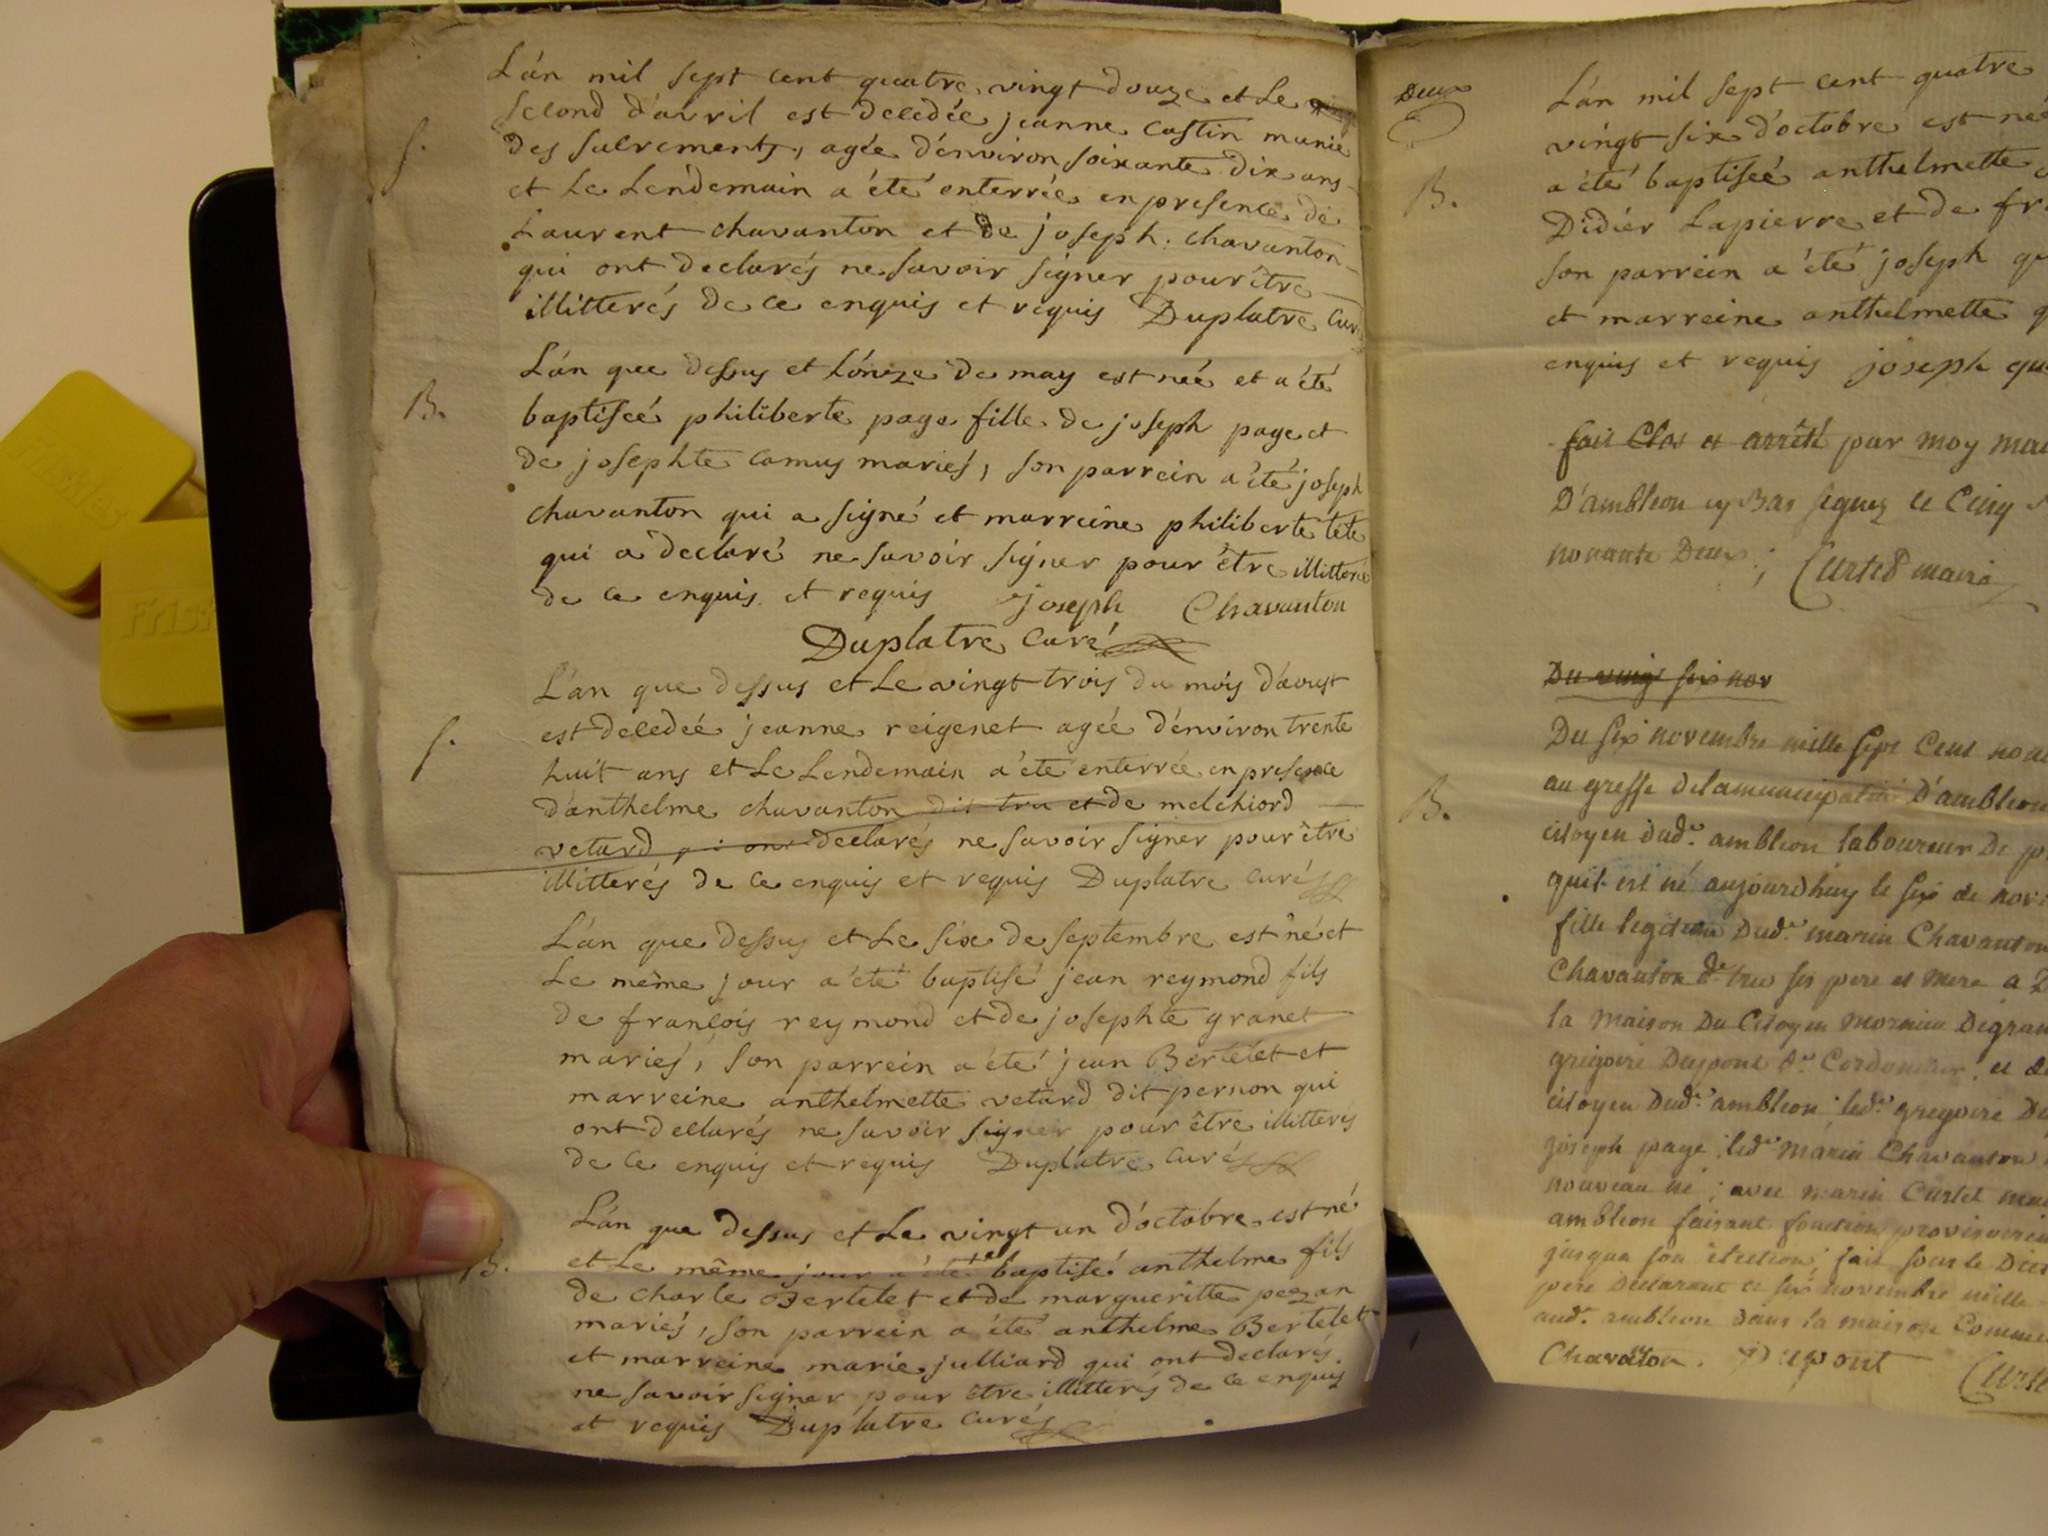 L'án mil sept cent quatre vingt douze et Le
second d'avril est decedée jeanne Castin munie
des sacrements, agée d'environ soixante dix ans
S.
et Le Lendemain a été enterrée en presence de
Laurent chavanton et de joseph chavanton
qui ont declarés ne savoir signer pour être
illitterés de ce enquis et requis Duplatre curé
L'án que dessus et L'onze de may est née et a été
B.
baptiseé philiberte page fille de joseph page et
de josephte camus mariés, son parrein a été joseph
chavanton qui a signé et marreine philiberte tête
qui a declaré ne savoir signer pour être illitterée
de ce enquis et requis joseph Chavanton
Duplatre curé
L'an que dessus et Le vingt trois du mois d'aoust
est decedeé jeanne reigenet agée d'environ trente
S.
huit ans et Le Lendemain a été enterrée en presence
d'anthelme chavanton dit tru et de melchiord
vetard qui ont declarés ne savoir signer pour être
illitterés de ce enquis et requis Duplatre curé
L'án que dessus et Le six de septembre est né et
Le même jour a été baptisé jean reymond fils
de françois reymond et de josephte granet
mariés, son parrein a été jean Bertelet et
marreine anthelmette vetard dit pernon qui
ont declarés ne savoir signer pour être illitterés
de ce enquis et requis Duplatre curé
L'án que dessus et Le vingt un d'octobre est né
B.
et Le même jour a été baptisé anthelme fils
de charle Bertelet et de margueritte pezan
mariés, son parrein a été anthelme Bertelet
et marreine marie julliard qui ont declarés
ne savoir signer pour être illitterés de ce enquis
et requis Duplatre curé
Deux
L'án mil sept cent quatre
vingt six d'octobre est née
B.
a été baptiseé anthelmette
Didier Lapierre et de
son parrein a été joseph
et marreine anthelmette
enquis et requis joseph
fait Clos et arrêté par moy
D'ambleon cy Bas signez le Cinq
nonante Deux; Curtet maire
Du vingt six nov
Du six novembre mille sept Cent
au greffe de la municipalité D'ambleon
B.
citoyen dud. ambleon laboureur De
quil est né aujourdhuy le six de
fille legitime Dud. marin Chavanton
Chavanton dt tru ses pere et mere a
la maison Du Citoyen
gregoire Dupont Cordonnier et
citoyen Dud. ambleon led. gregoire
joseph page led. marin Chavanton
nouveau né; avec marin Curtet
ambleon faisant fonction
jusqua son election, fait sous le
pere Declarant ce six novembre mille
aud. ambleon dans la maison
Chavaton. Dupont